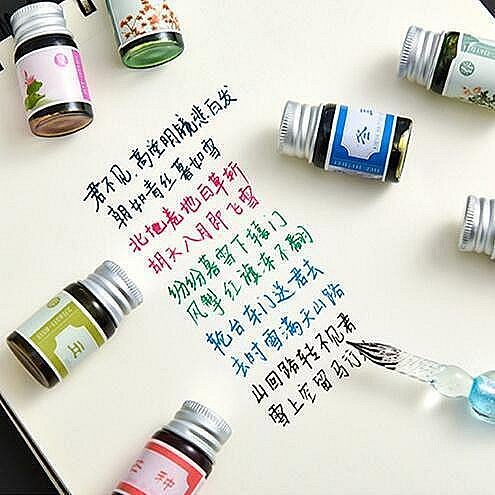 君不见高堂明镜悲白发
朝如青丝暮如雪
北地卷地白草折
胡天八月即飞雪
纷纷暮雪下辕门
风掣红旗冻不翻
轮台东门送君去
去时雪满天山路
山回路转不见君
雪上空留马